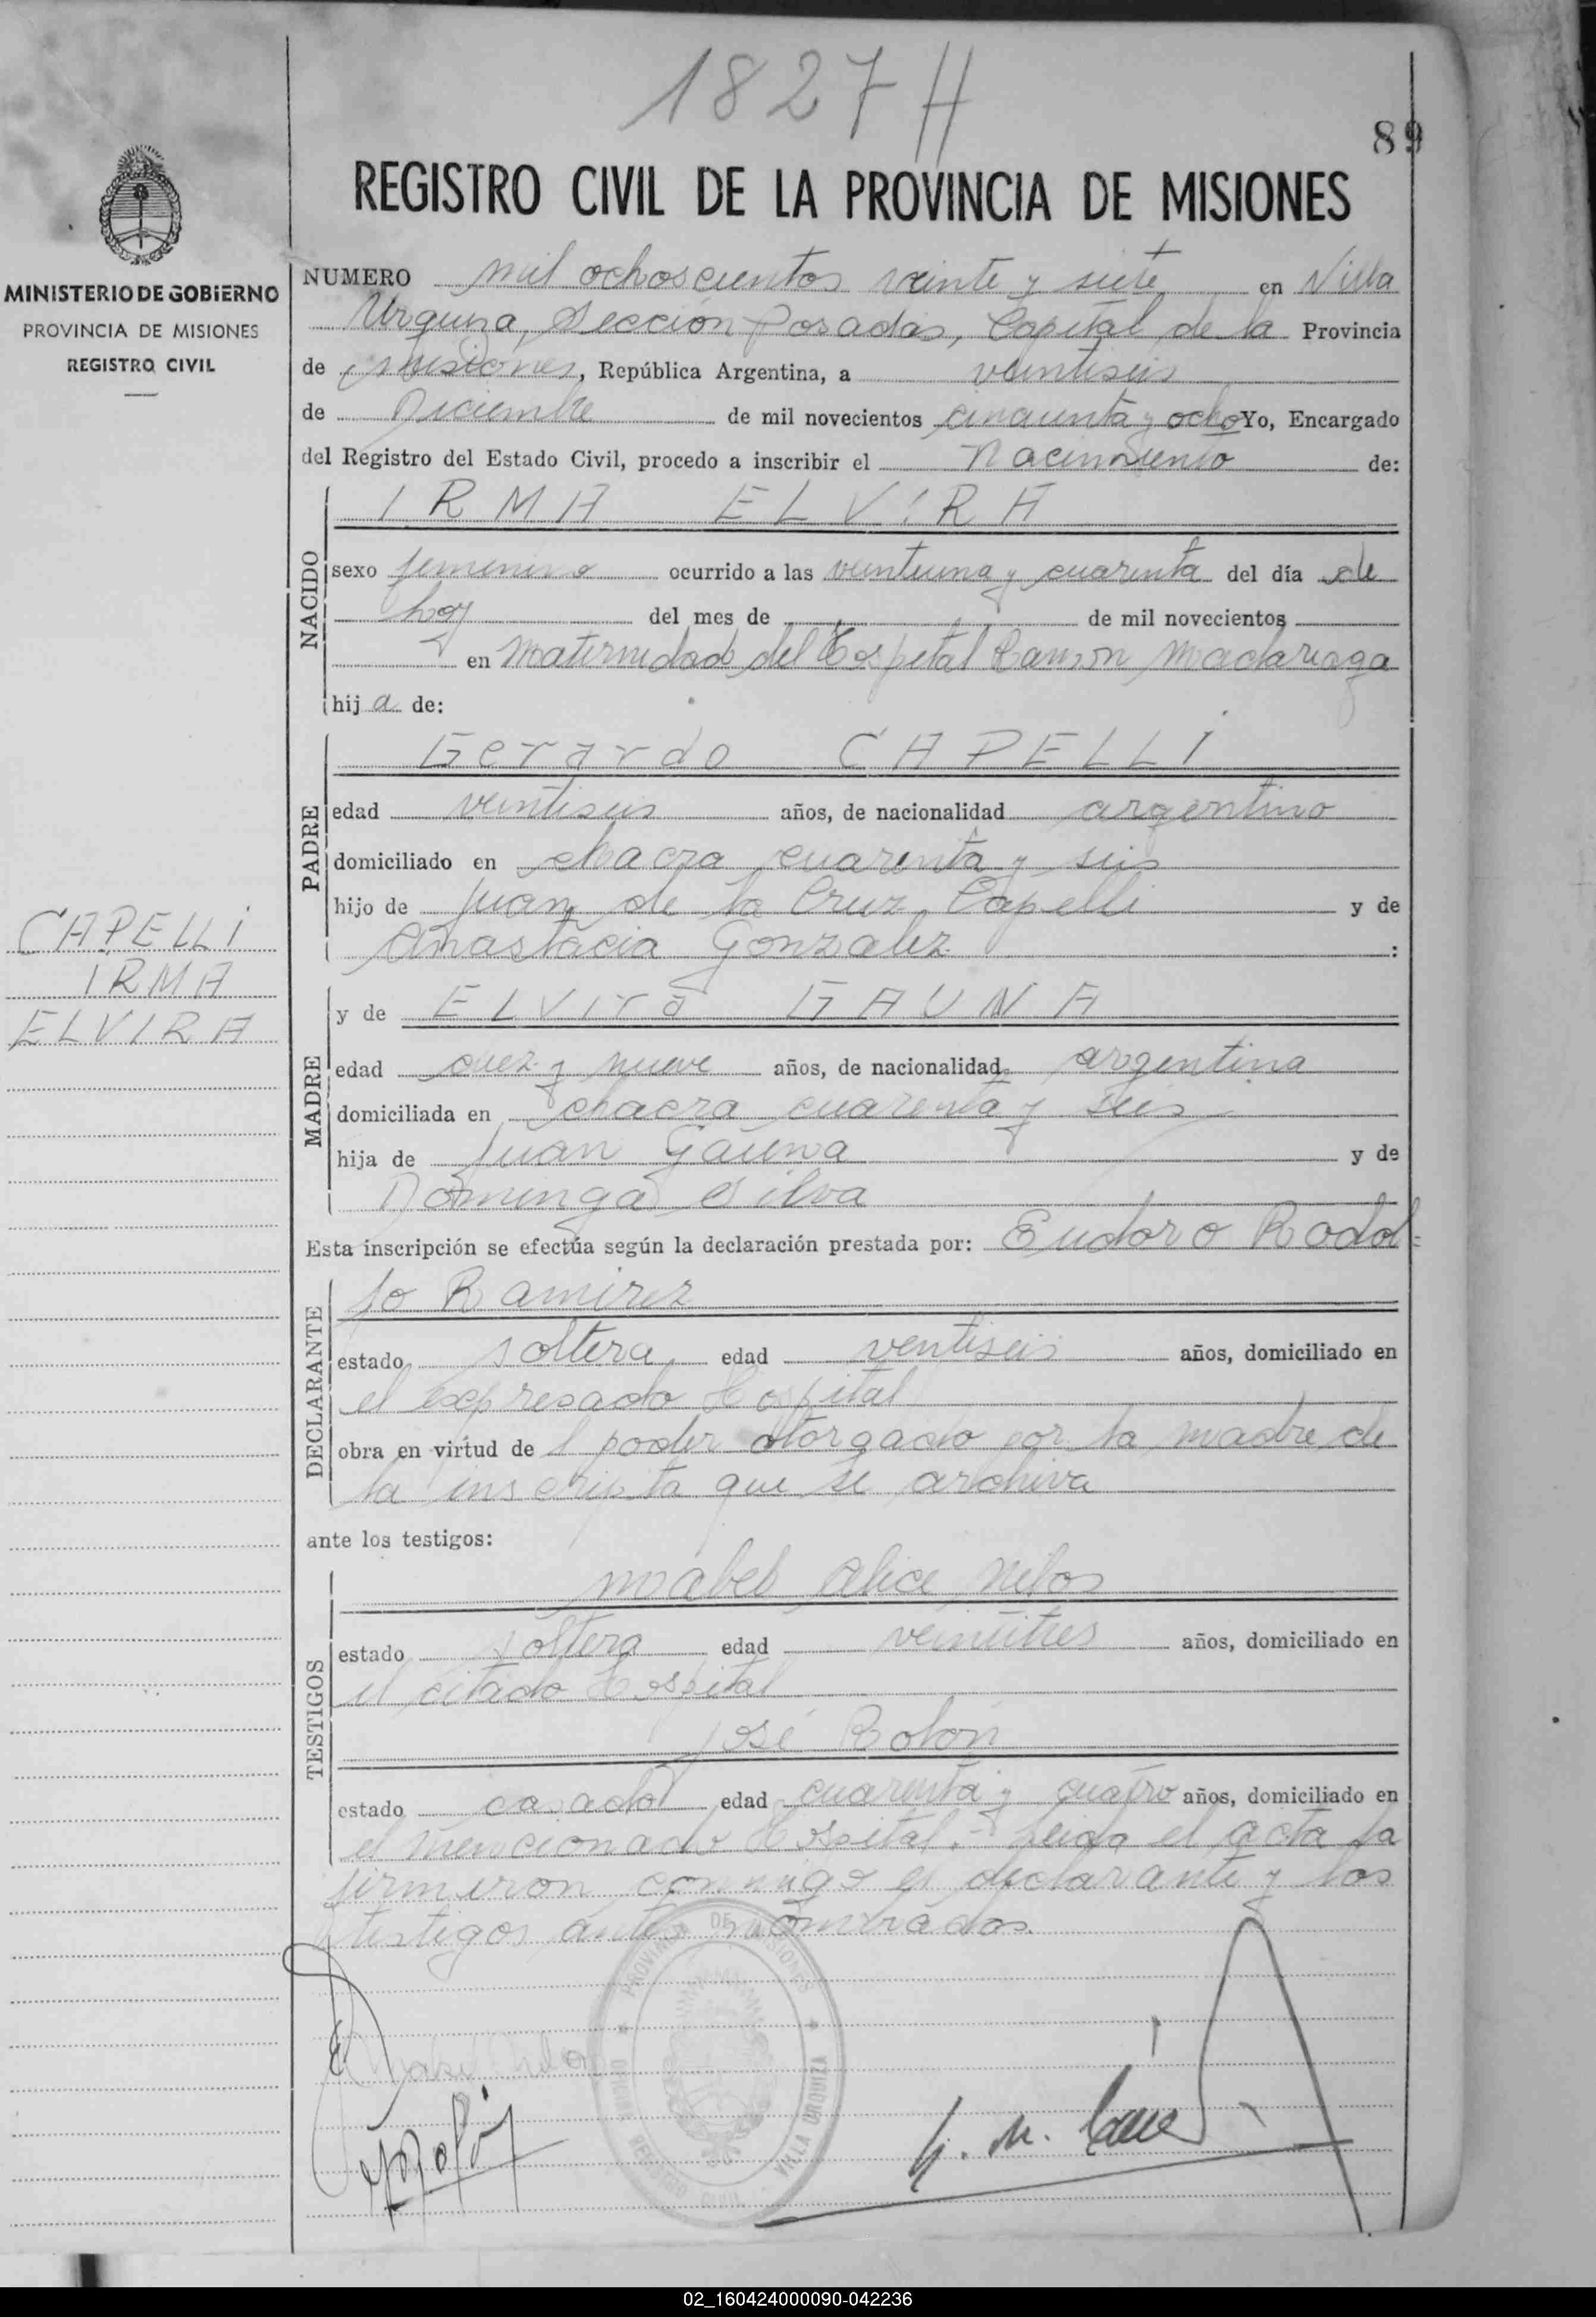 1827 H
89
REGISTRO CIVIL DE LA PROVINCIA DE MISIONES
MINISTERIO DE GOBIERNO
PROVINCIA DE MISIONES
REGISTRO CIVIL
NUMERO mil ochoscientos veinte y siete en Villa
Urquiza, Sección Posadas, Capital de la Provincia
de Misiones, República Argentina, a veintiseis
de Diciembre de mil novecientos cincuenta y ocho Yo, Encargado
del Registro del Estado Civil, procedo a inscribir el Nacimiento de:
NACIDO
IRMA ELVIRA
sexo femenino ocurrido a las veintiuna y cuarenta del día de
hoy del mes de de mil novecientos
en Maternidad del Hospital Ramon Madariaga
hija de:
PADRE
Gerardo CAPELLI
edad veintiseis años, de nacionalidad argentino
domiciliado en chacra cuarenta y seis
hijo de Juan de la Cruz Capelli y de
Anastacia Gonzalez :
CAPELLI
IRMA
ELVIRA
MADRE
y de ELVira GAUNA
edad diez y nueve años, de nacionalidad argentina
domiciliada en chacra cuarenta y seis
hija de Juan Gauna y de
Dominga Silva
Esta inscripción se efectúa según la declaración prestada por: Eudoro Rodol=
DECLARANTE
fo Ramirez
estado soltera edad ventiseis años, domiciliado en
el expresado Hospital
obra en virtud de l poder otorgado por la madre de
la inscripta que se archiva
ante los testigos:
TESTIGOS
Mabel Alice
estado soltera edad veintitres años, domiciliado en
el citado Hospital
José Rolon
estado casado edad cuarenta y cuatro años, domiciliado en
el mencionado Hospital.- Leida el acta la
firmeron conmigo el declarante y los
testigos antes nombrados.
PROVINCIA DE MISIONES
OFICINA REGISTRO CIVIL VILLA URQUIZA
02_160424000090-042236